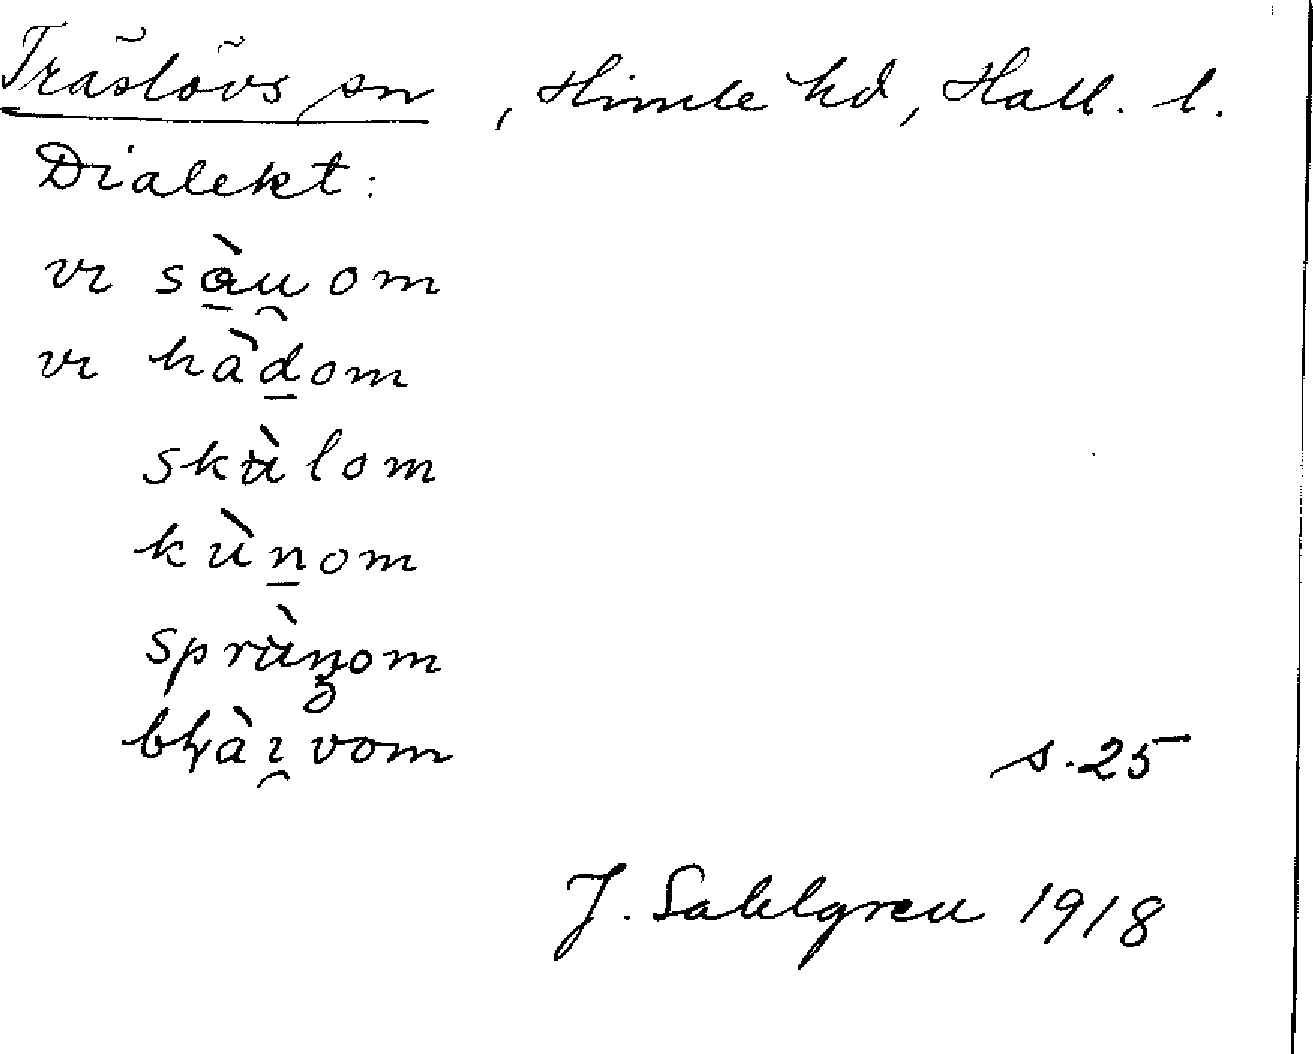 Träslövs sn, Himle hd, Hall. l.
Dialekt:
vr sà̠u̯om
vr hàd̠om
skùlom
kùn̠om
sprùŋom
bḷài̯vom
s. 25
J. Sahlgren 1918